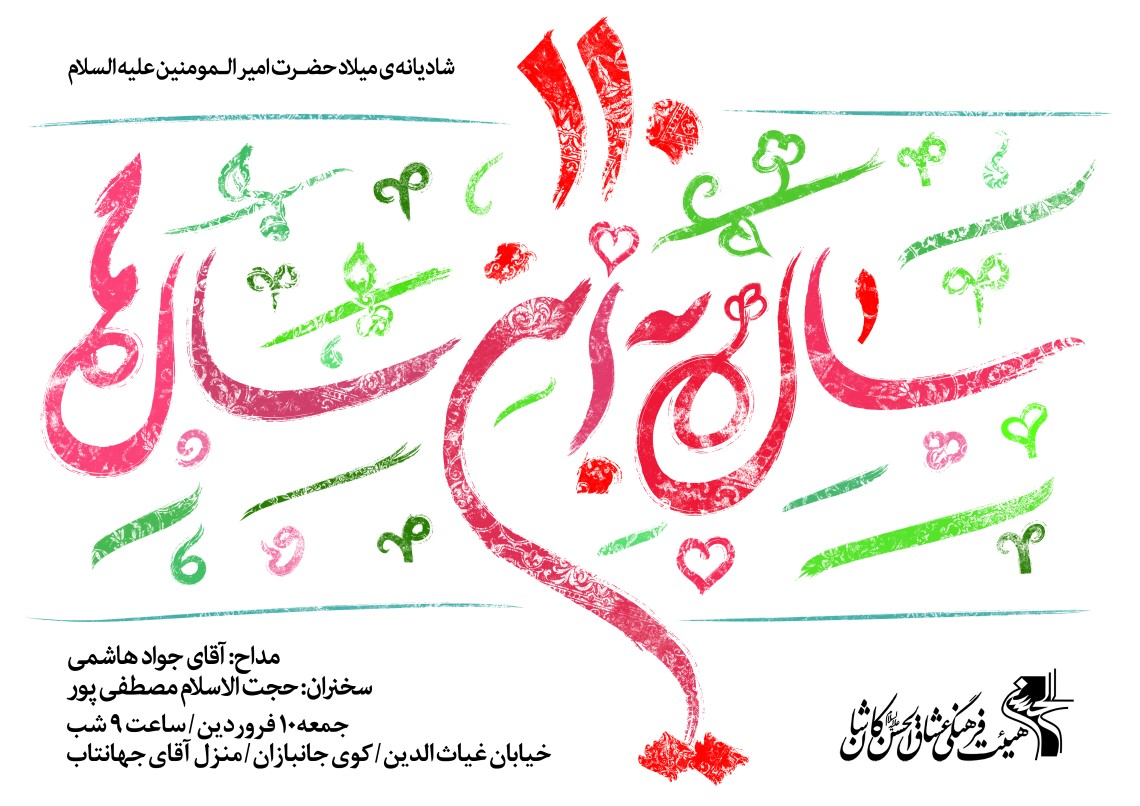 شادیانه‌ی میلاد حضرت امیر المومنین علیه السلام
۱۱۰
سال به این سال‌ها
مداح: آقای جواد هاشمی
سخنران: حجت الاسلام مصطفی پور
جمعه ۱۰ فروردین / ساعت ۹ شب
خیابان غیاث الدین / کوی جانبازان / منزل آقای جهانتاب
هیئت فرهنگی عشاق الحسن علیه السلام کاشان